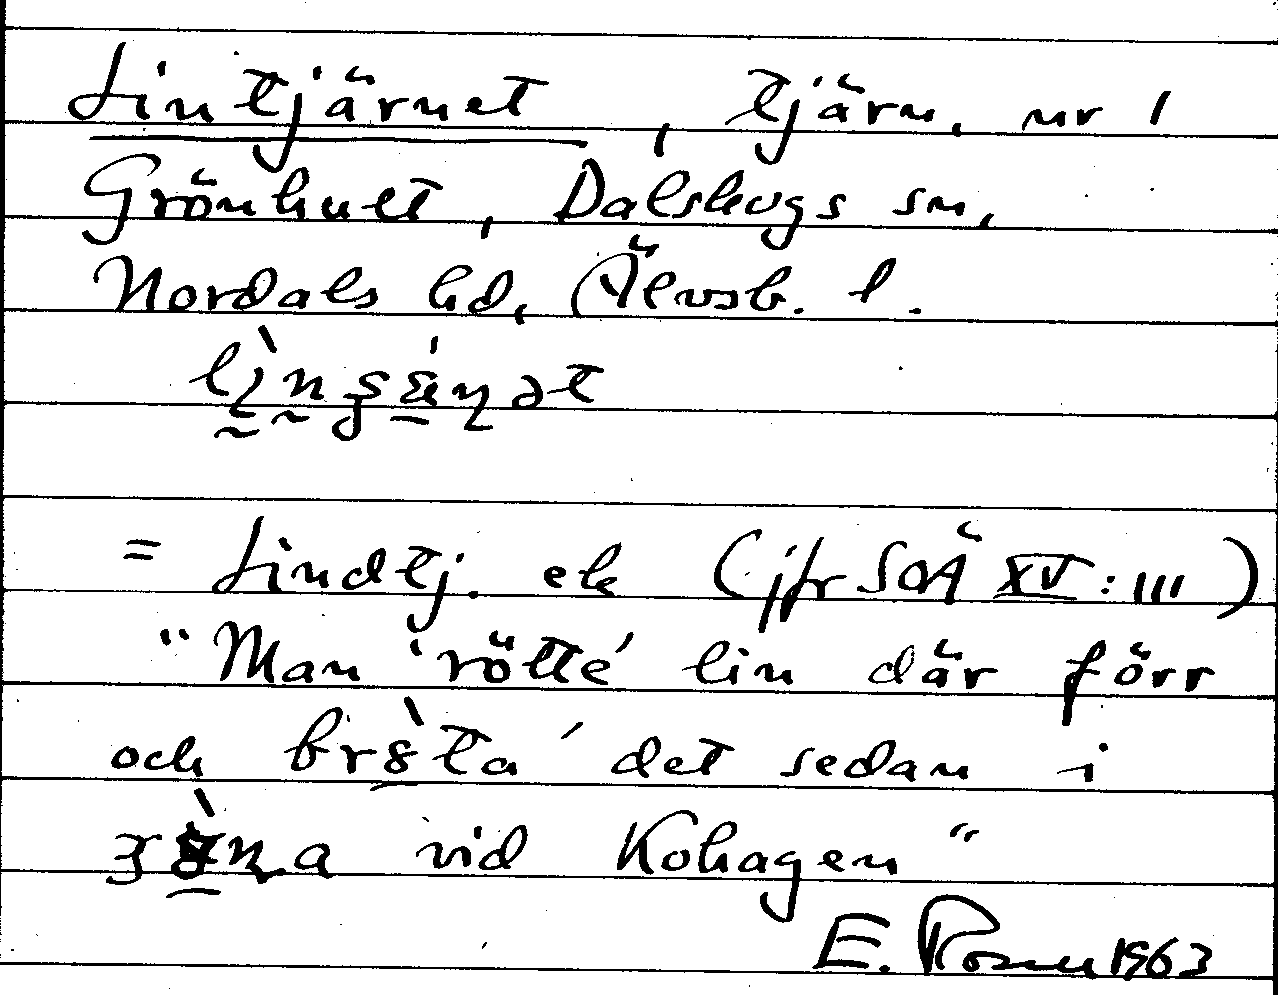 Lintjärnet, tjärn, nr 1
Grönhult, Dalskogs sn,
Nordals hd, Älvsb. l.
= Lindtj. ek (jfr SOÄ XV: III)
"Man 'rötte' lin där förr
och bröta' det sedan i
vid Kohagen"
E. Rosen 1963